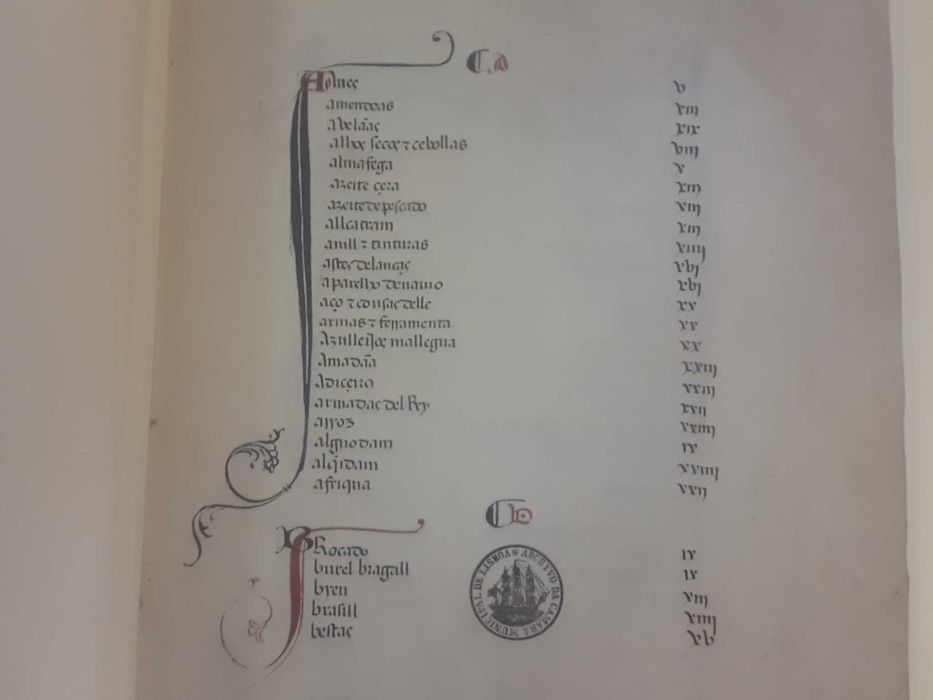 ¶ A
Adubos v
amendoas xiij
Avelãas xix
alhos secos e cebollas viij
almafega v
azeite çera xiij
azeite de pescado xiij
allcatram xiij
anill e tinturas xiiij
astes de lanças xbj
aparelho de navio xbj
aço e cousas delle xx
armas e ferramenta xx
Azulleijos mallegua xx
Amadãa xxiij
Adiçeiro xxiij
armadas del Rey xxij
arroz xxiiij
alguodam ix
alqidam xxviiij
afriqua xxij
¶ B
BRocado ix
burel bragall ix
breu xiij
brasill xiiij
bestas xb
ARCHIVO DA CAMARA MUNICIPAL DE LISBOA